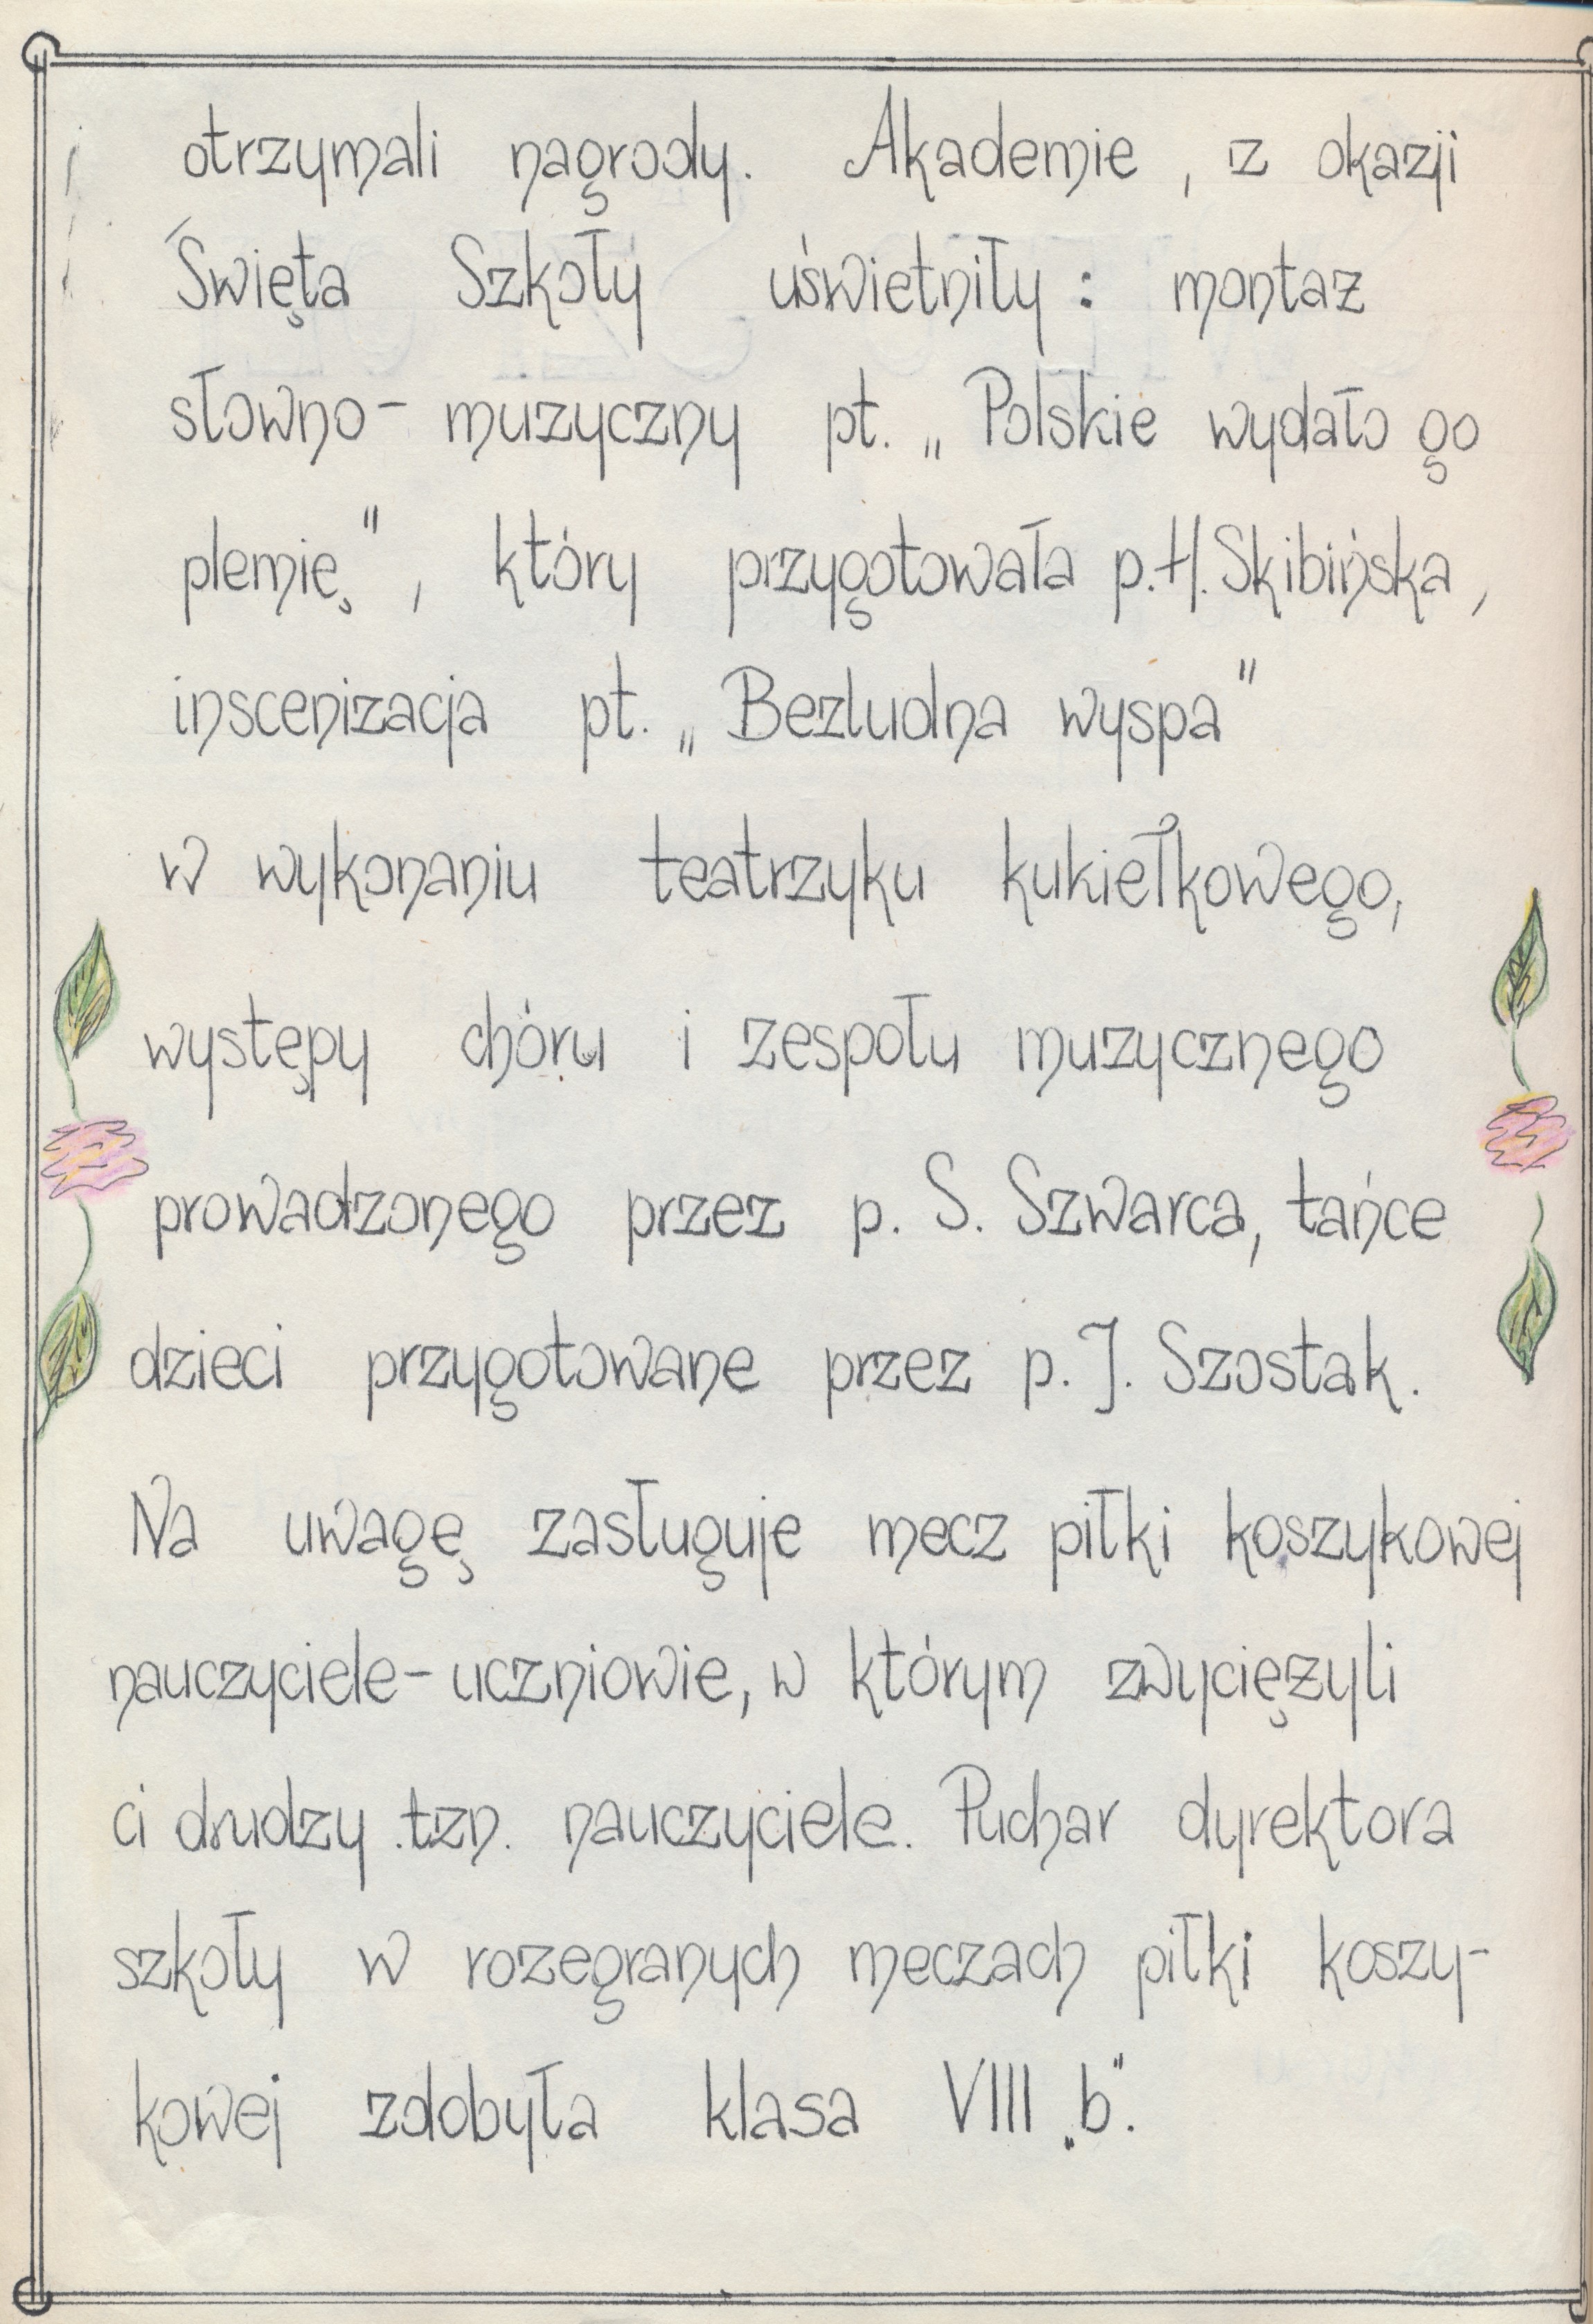 otrzymali nagrody. Akademie, z okazji
Święta Szkoły uświetniły: montaż
słowno- muzyczny pt. „Polskie wydało go
plemię", który przygotowała p. H. Skibińska,
inscenizacja pt. „Bezludna wyspa"
w wykonaniu teatrzyku kukiełkowego,
występy chóru i zespołu muzycznego
prowadzonego przez p. S. Szwarca, tańce
dzieci przygotowane przez p. J. Szostak.
Na uwagę zasługuje mecz piłki koszykowej
nauczyciele-uczniowie, w którym zwyciężyli
ci drudzy tzn. nauczyciele. Puchar dyrektora
szkoły w rozegranych meczach piłki koszy-
kowej zdobyła klasa VIII „b".